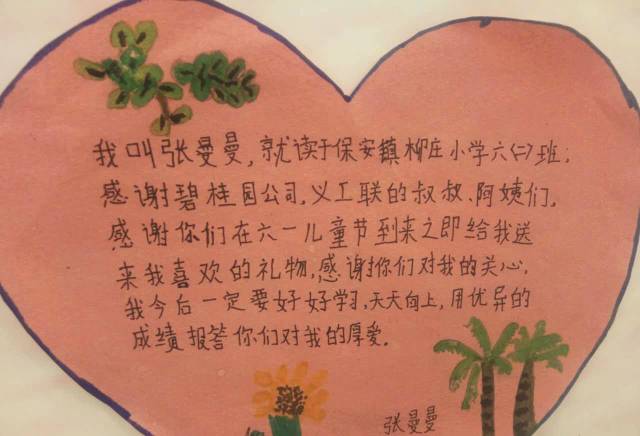 我叫张曼曼，就读于保安镇柳庄小学六(二)班，
感谢碧桂园公司，义工联的叔叔、阿姨们，
感谢你们在六一儿童节到来之即给我送
来我喜欢的礼物，感谢你们对我的关心，
我今后一定要好好学习，天天向上，用优异的
成绩报答你们对我的厚爱。
张曼曼